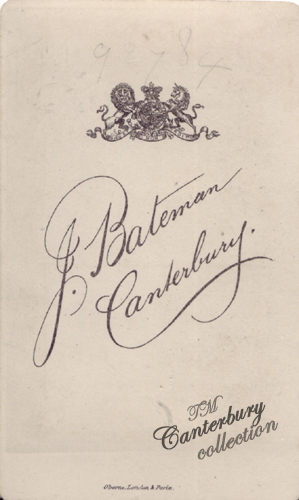 J. Bateman
Canterbury.
TM
Canterbury
collection
Oberne, London & Paris.